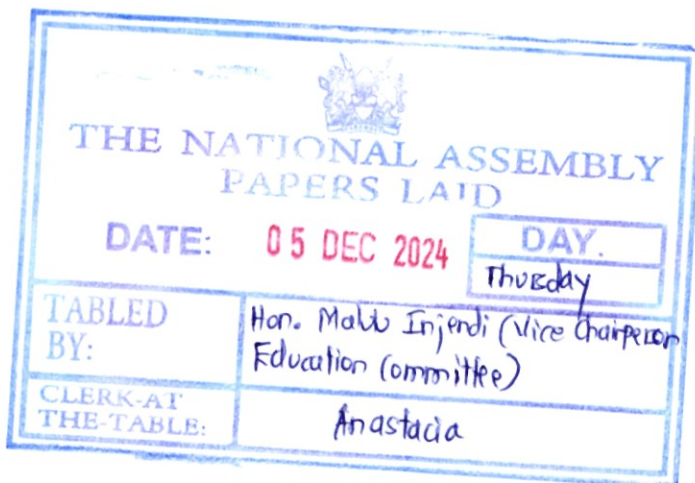 THE NATIONAL ASSEMBLY
PAPERS LAID
DATE: 05 DEC 2024
DAY.
Thursday
TABLED
BY:
Hon. Injendi (Vice Chairperson
Education Committee)
CLERK-AT
THE-TABLE:
Anastacia